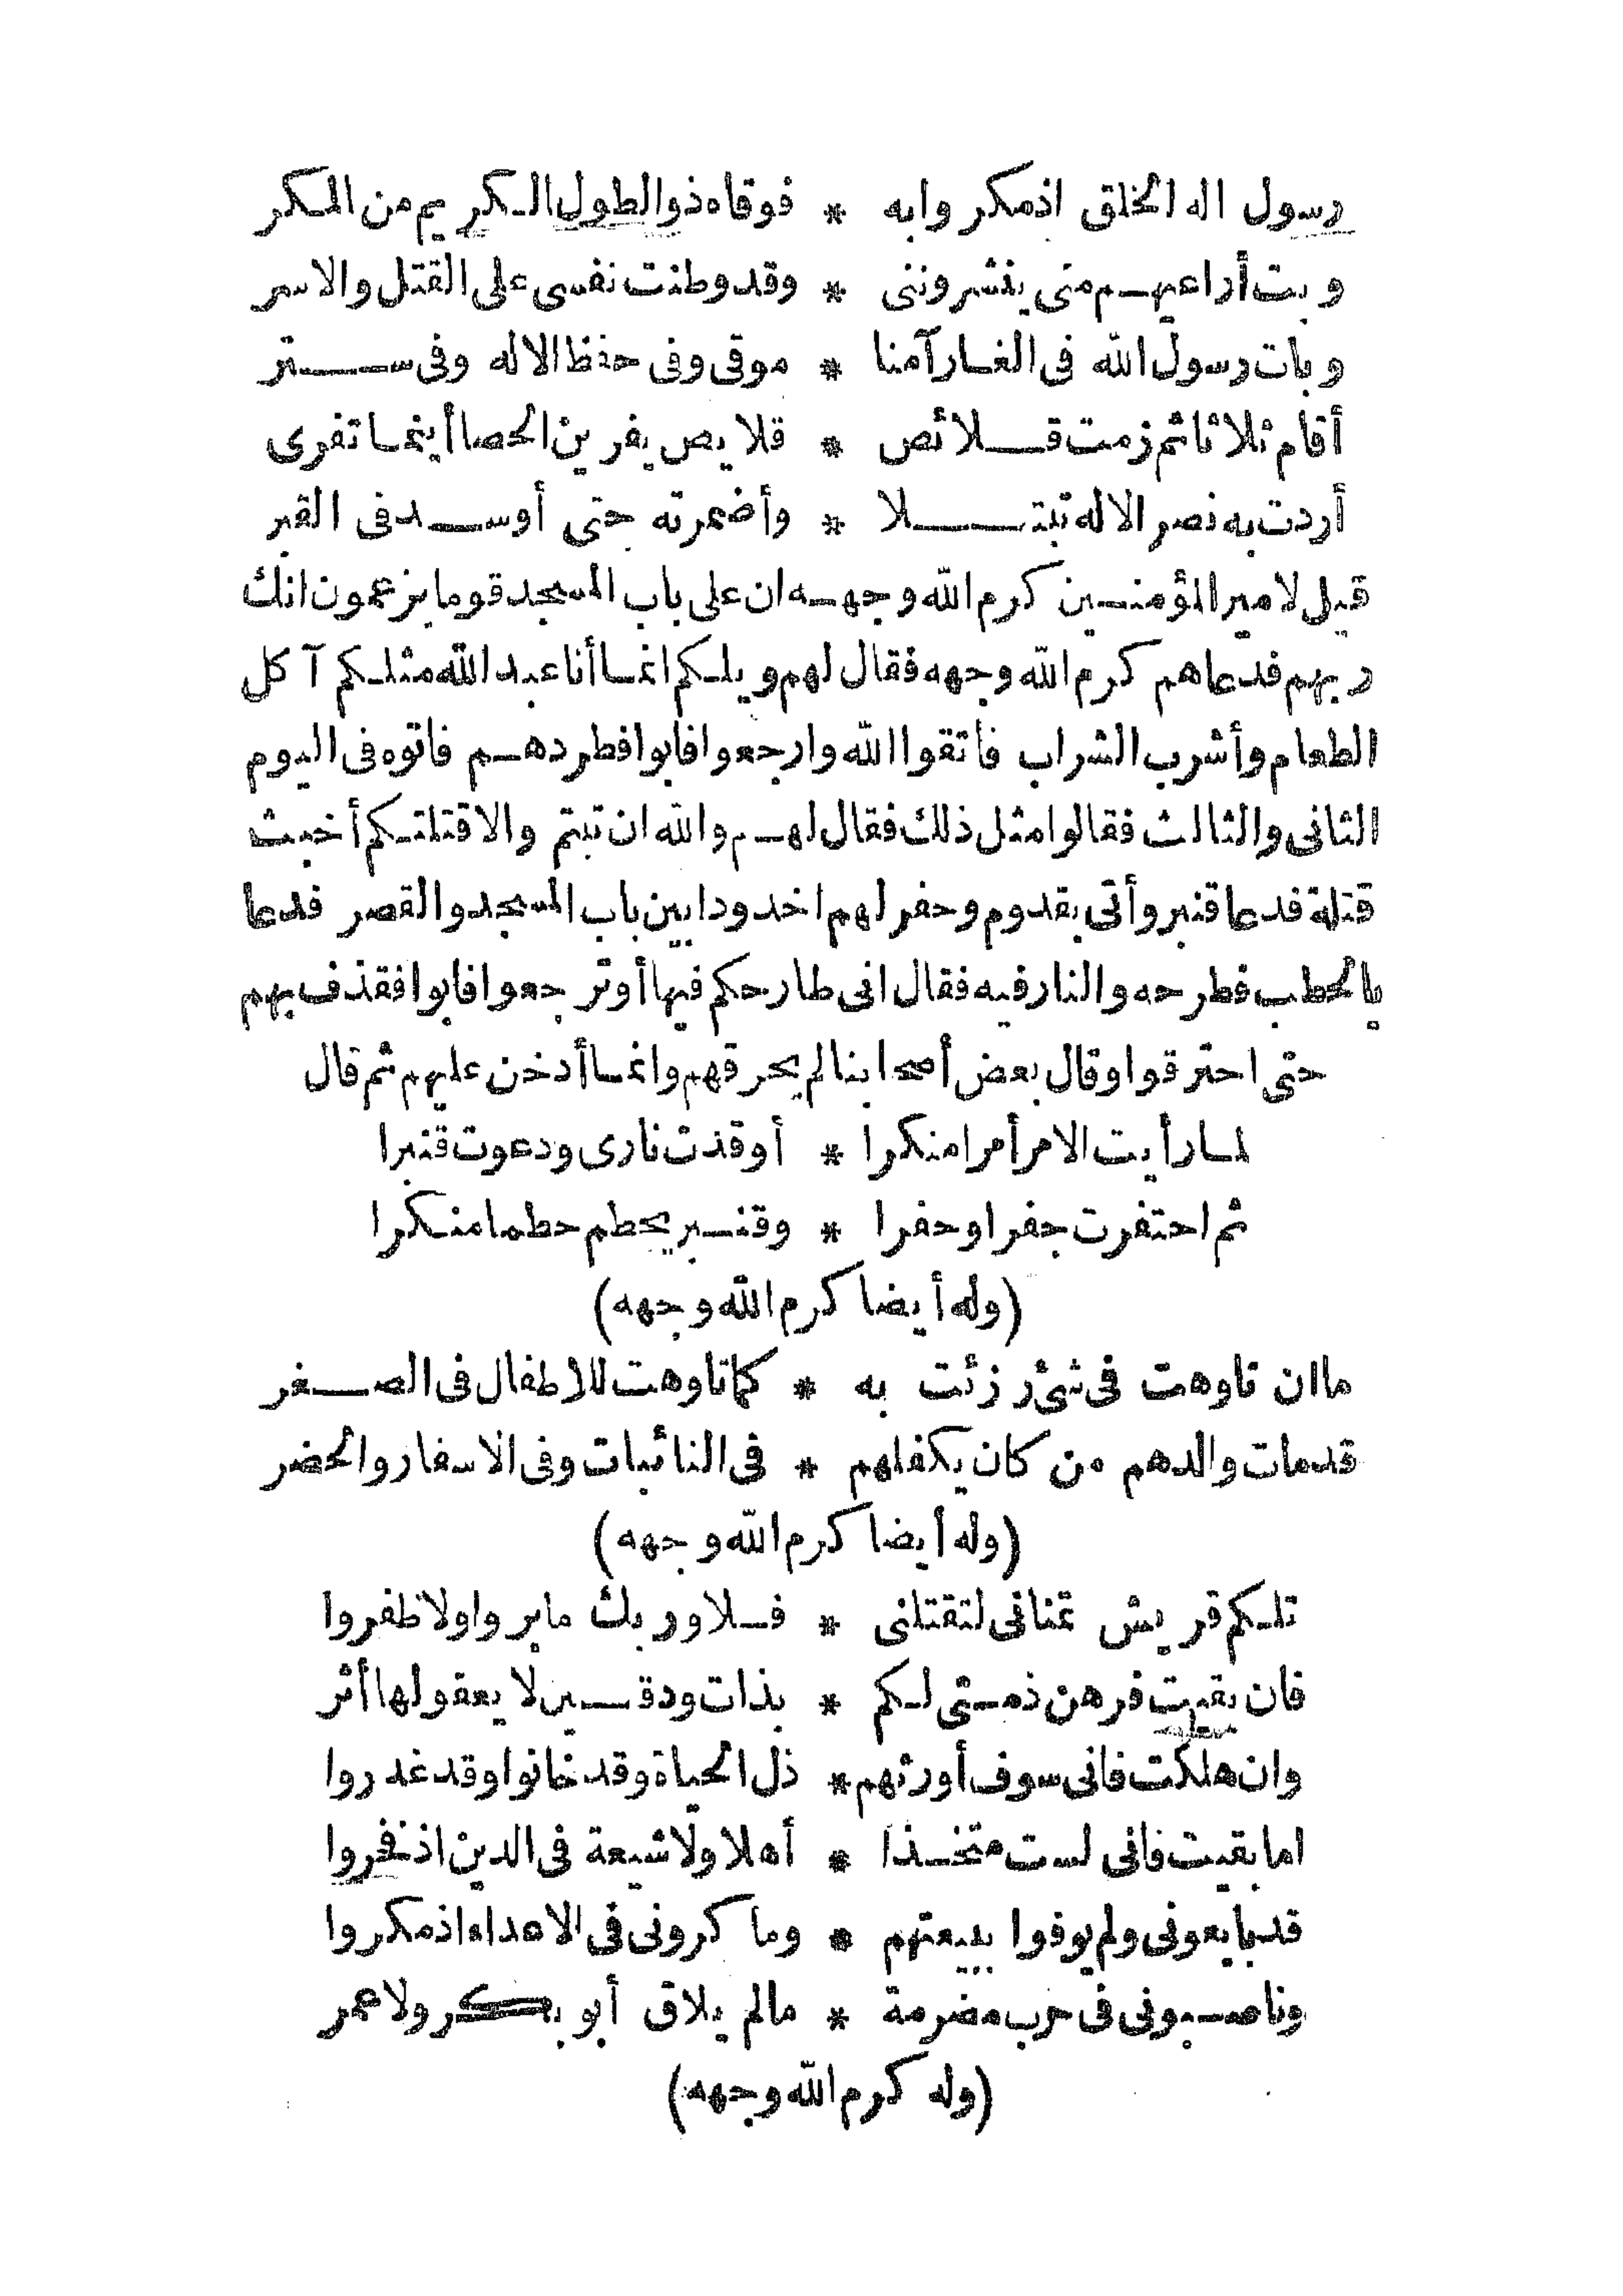 رسول اله الخلق اذمكر وابه * فوقاه ذوالطول الكريم من المكر
وبت أراعيهم متى ينشرونني * وقد وطنت نفسى على القتل والاسر
وبات رسول الله فى الغار آمنا * موقى وفى حفظ الاله وفى ستر
أقام ثلاثا ثم زمت قلائص * قلايص يفرين الحصا أينما تفرى
أردت به نصر الاله تبتلا * وأضمرته حتى أوسد فى القبر
قيل لامير المؤمنين كرم الله وجهه ان على باب المسجد قوما يزعمون انك
ربهم فدعاهم كرم الله وجهه فقال لهم ويلكم انما أنا عبد الله مثلكم آكل
الطعام وأشرب الشراب فاتقوا الله وارجعوا فابوا فطردهم فاتوه فى اليوم
الثانى والثالث فقالوا مثل ذلك فقال لهم والله ان تبتم والا قتلتكم أخبث
قتلة فدعا قنبر وأتى بقدوم وحفر لهم اخدودا بين باب المسجد والقصر فدعا
بالحطب فطرحه والنار فيه فقال انى طارحكم فيها أو ترجعوا فابوا فقذف بهم
حتى احترقوا وقال بعض أصحابنا لم يحرقهم وانما أدخن عليهم ثم قال
لما رأيت الامر أمرا منكرا * أوقدت نارى ودعوت قنبرا
ثم احتفرت جفرا وحفرا * وقنبر يحطم حطما منكرا
(وله أيضا كرم الله وجهه)
ما ان تاوهت فى شئ رزئت به * كما تاوهت للاطفال فى الصغر
قدمات والدهم من كان يكفلهم * فى النائبات وفى الاسفار والحضر
(وله أيضا كرم الله وجهه)
تلكم قريش تمنانى لتقتلنى * فلا وربك ما بروا ولا ظفروا
فان بقيت فرهن ذمتى لكم * بذات ودقين لا يعفو لها أثر
وان هلكت فانى سوف أورثهم * ذل الحياة وقد خانوا وقد غدروا
اما بقيت فانى لست متخذا * أهلا ولا شيعة فى الدين اذ فجروا
قد بايعونى ولم يوفوا ببيعتهم * وما كرونى فى الاعداء اذمكروا
وناصبونى فى حرب مضرمة * مالم يلاق أبو بكر ولا عمر
(وله كرم الله وجهه)